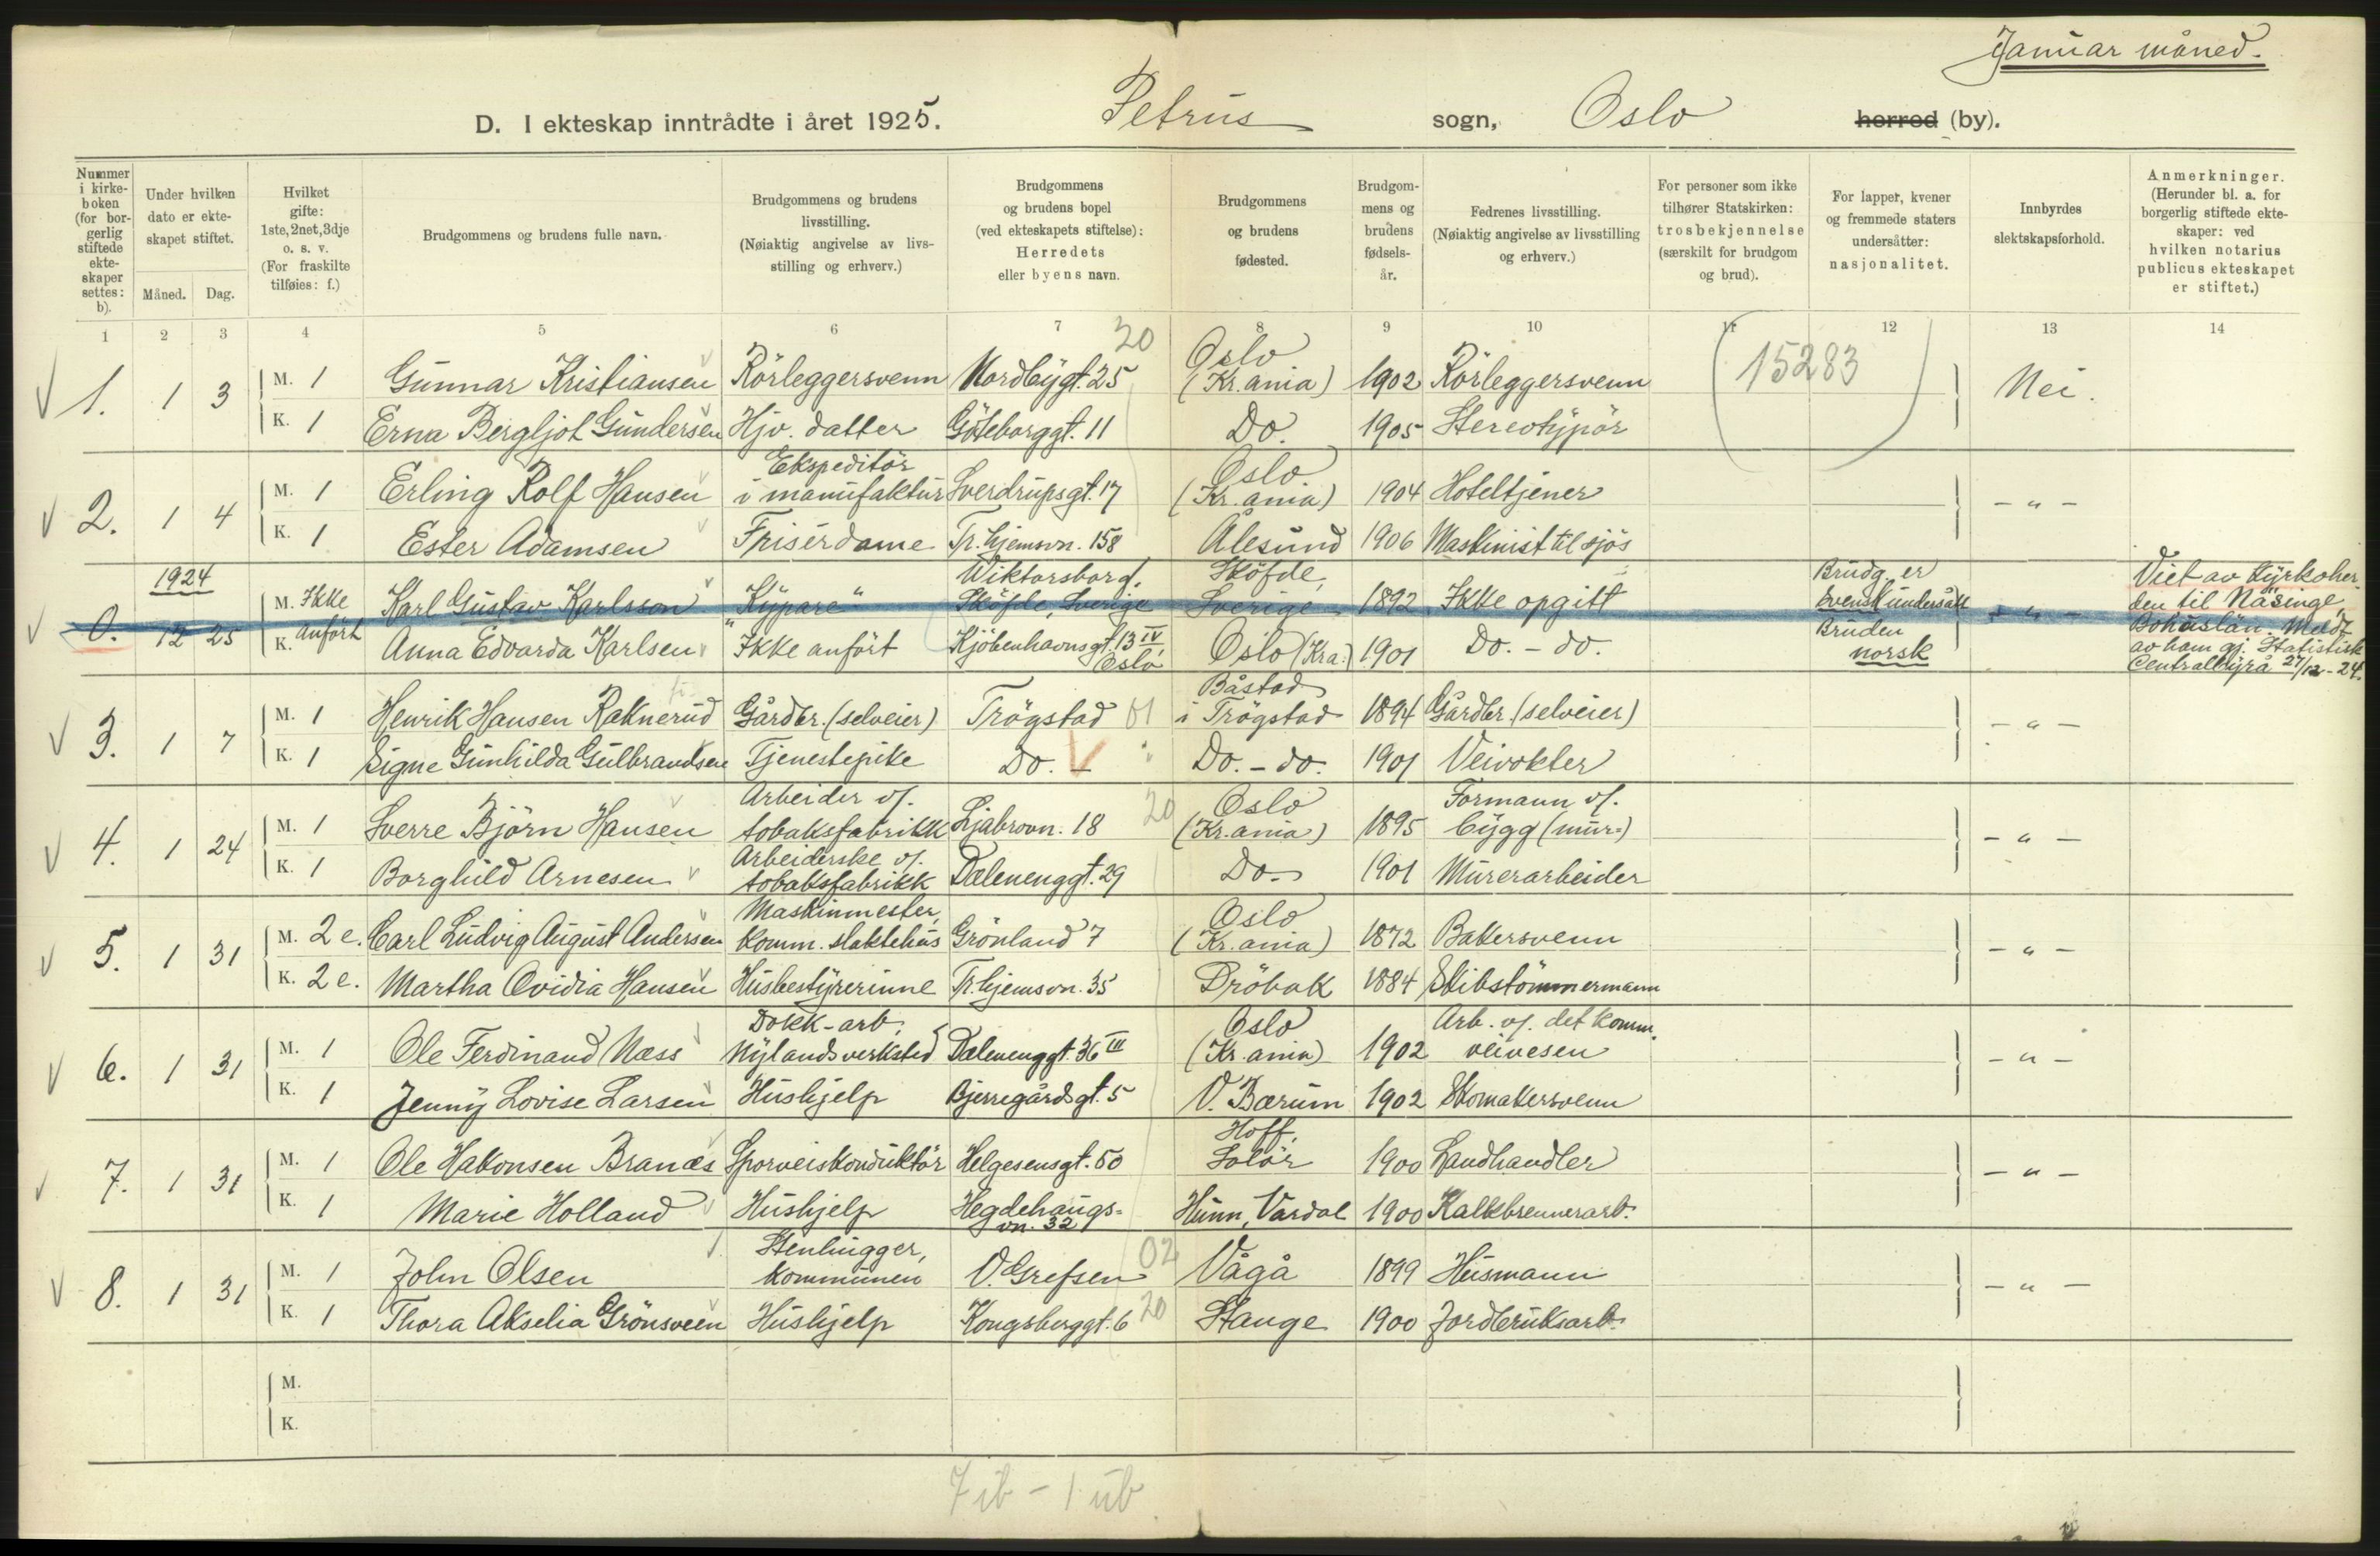 Januar måned.
D. I ekteskap inntrådte i året 1925. Petrus sogn, Oslo herred (by).
Nummer i kirkeboken (for borgerlig stiftede ekteskaper settes: b).
Under hvilken dato er ekteskapet stiftet.
Måned. Dag.
Hvilket gifte: 1ste, 2net, 3dje o. s. v. (For fraskilte tilføies: f.)
Brudgommens og brudens fulle navn.
Brudgommens og brudens livsstilling. (Nøiaktig angivelse av livsstilling og erhverv.)
Brudgommens og brudens bopel (ved ekteskapets stiftelse): Herredets eller byens navn.
Brudgommens og brudens fødested.
Brudgommens og brudens fødselsår.
Fedrenes livsstilling. (Nøiaktig angivelse av livsstilling og erhverv.)
For personer som ikke tilhører Statskirken: trosbekjennelse (særskilt for brudgom og brud).
For lapper, kvener og fremmede staters undersåtter: nasjonalitet.
Innbyrdes slektskapsforhold.
Anmerkninger. (Herunder bl. a. for borgerlig stiftede ekteskaper: ved hvilken notarius publicus ekteskapet er stiftet.)
1 2 3 4 5 6 7 8 9 10 11 12 13 14
20
(15283)
1. 1 3 M. 1 Gunnar Kristiansen Rörleggersvenn Nordbygt. 25 Oslo (Kr.ania) 1902 Rörleggersvenn Nei.
K. 1 Erna Bergljot Gundersen Hjv. datter Göteborggt. 11 Do. 1905 Stereotypör
2. 1 4 M. 1 Erling Rolf Hansen Ekspeditör i manufaktur Sverdrupsgt. 17 Oslo (Kr.ania) 1904 Hoteltjener - " -
K. 1 Ester Adamsen Frisérdame Tr.hjemsvn. 158 Ålesund 1906 Maskinist til sjös
1924
0. 12 25 M. Ikke Karl Gustav Karlsson "Kypare" Wiktorsborg. Sköfde, Sverige Sköfde, Sverige 1892 Ikke opgitt Brudg. er svensk undersått - " - Viet av kyrkoher-
K. anfört Anna Edvarda Karlsen Ikke anfört Kjöbenhavnsgt. 13 IV, Oslo Oslo (Kra.) 1901 Do. - do. Bruden norsk
den til Näsinge,
Bohuslän. Meldt
av ham gj. Statistisk
Centralbyrå 27/12-24.
3. 1 7 M. 1 Henrik Hansen Raknerud Gårdbr. (selveier) Trögstad 01 Båstad i Trögstad 1894 Gårdbr. (selveier) - " -
K. 1 Signe Gunhilda Gulbrandsen Tjenestepike Do. - " Do. - do. 1901 Veivokter
4. 1 24 M. 1 Sverre Björn Hansen Arbeider v/. tobaksfabrikk Ljabrovn. 18 20 Oslo (Kr.ania) 1895 Formann v/. bygg (mur-) - " -
K. 1 Borghild Arnesen Arbeiderske v/. tobaksfabrikk Dælenenggt. 29 Do. 1901 Murerarbeider
5. 1 31 M. 2 e. Carl Ludvig August Andersen Maskinmester, komm. slaktehus Grönland 7 Oslo (Kr.ania) 1872 Bakersvenn - " -
K. 2 e. Martha Ovidia Hansen Husbestyrerinne Tr.hjemsvn. 35 Dröbak 1884 Skibstömmermann
6. 1 31 M. 1 Ole Ferdinand Næss Dokk-arb. Nylands verksted Dælenenggt. 36 III Oslo (Kr.ania) 1902 Arb. v/. det komm. veivesen - " -
K. 1 Jenny Lovise Larsen Hushjelp Bjerregårdsgt. 5 V. Bærum 1902 Skomakersvenn
7. 1 31 M. 1 Ole Hakonsen Branæs Sporveiskonduktör Helgesensgt. 50 Hoff, Solör 1900 Landhandler - " -
K. 1 Marie Holland Hushjelp Hegdehaugs-vn. 32 Hunn, Vardal 1900 Kalkbrennerarb.
8. 1 31 M. 1 John Olsen Stenhugger, kommunen V. Grefsen 02 Vågå 1899 Husmann - " -
K. 1 Thora Akselia Grönsveen Hushjelp Kongsberggt. 6 20 Stange 1900 Jordbruksarb.
M.
K.
7 ib - 1 ub